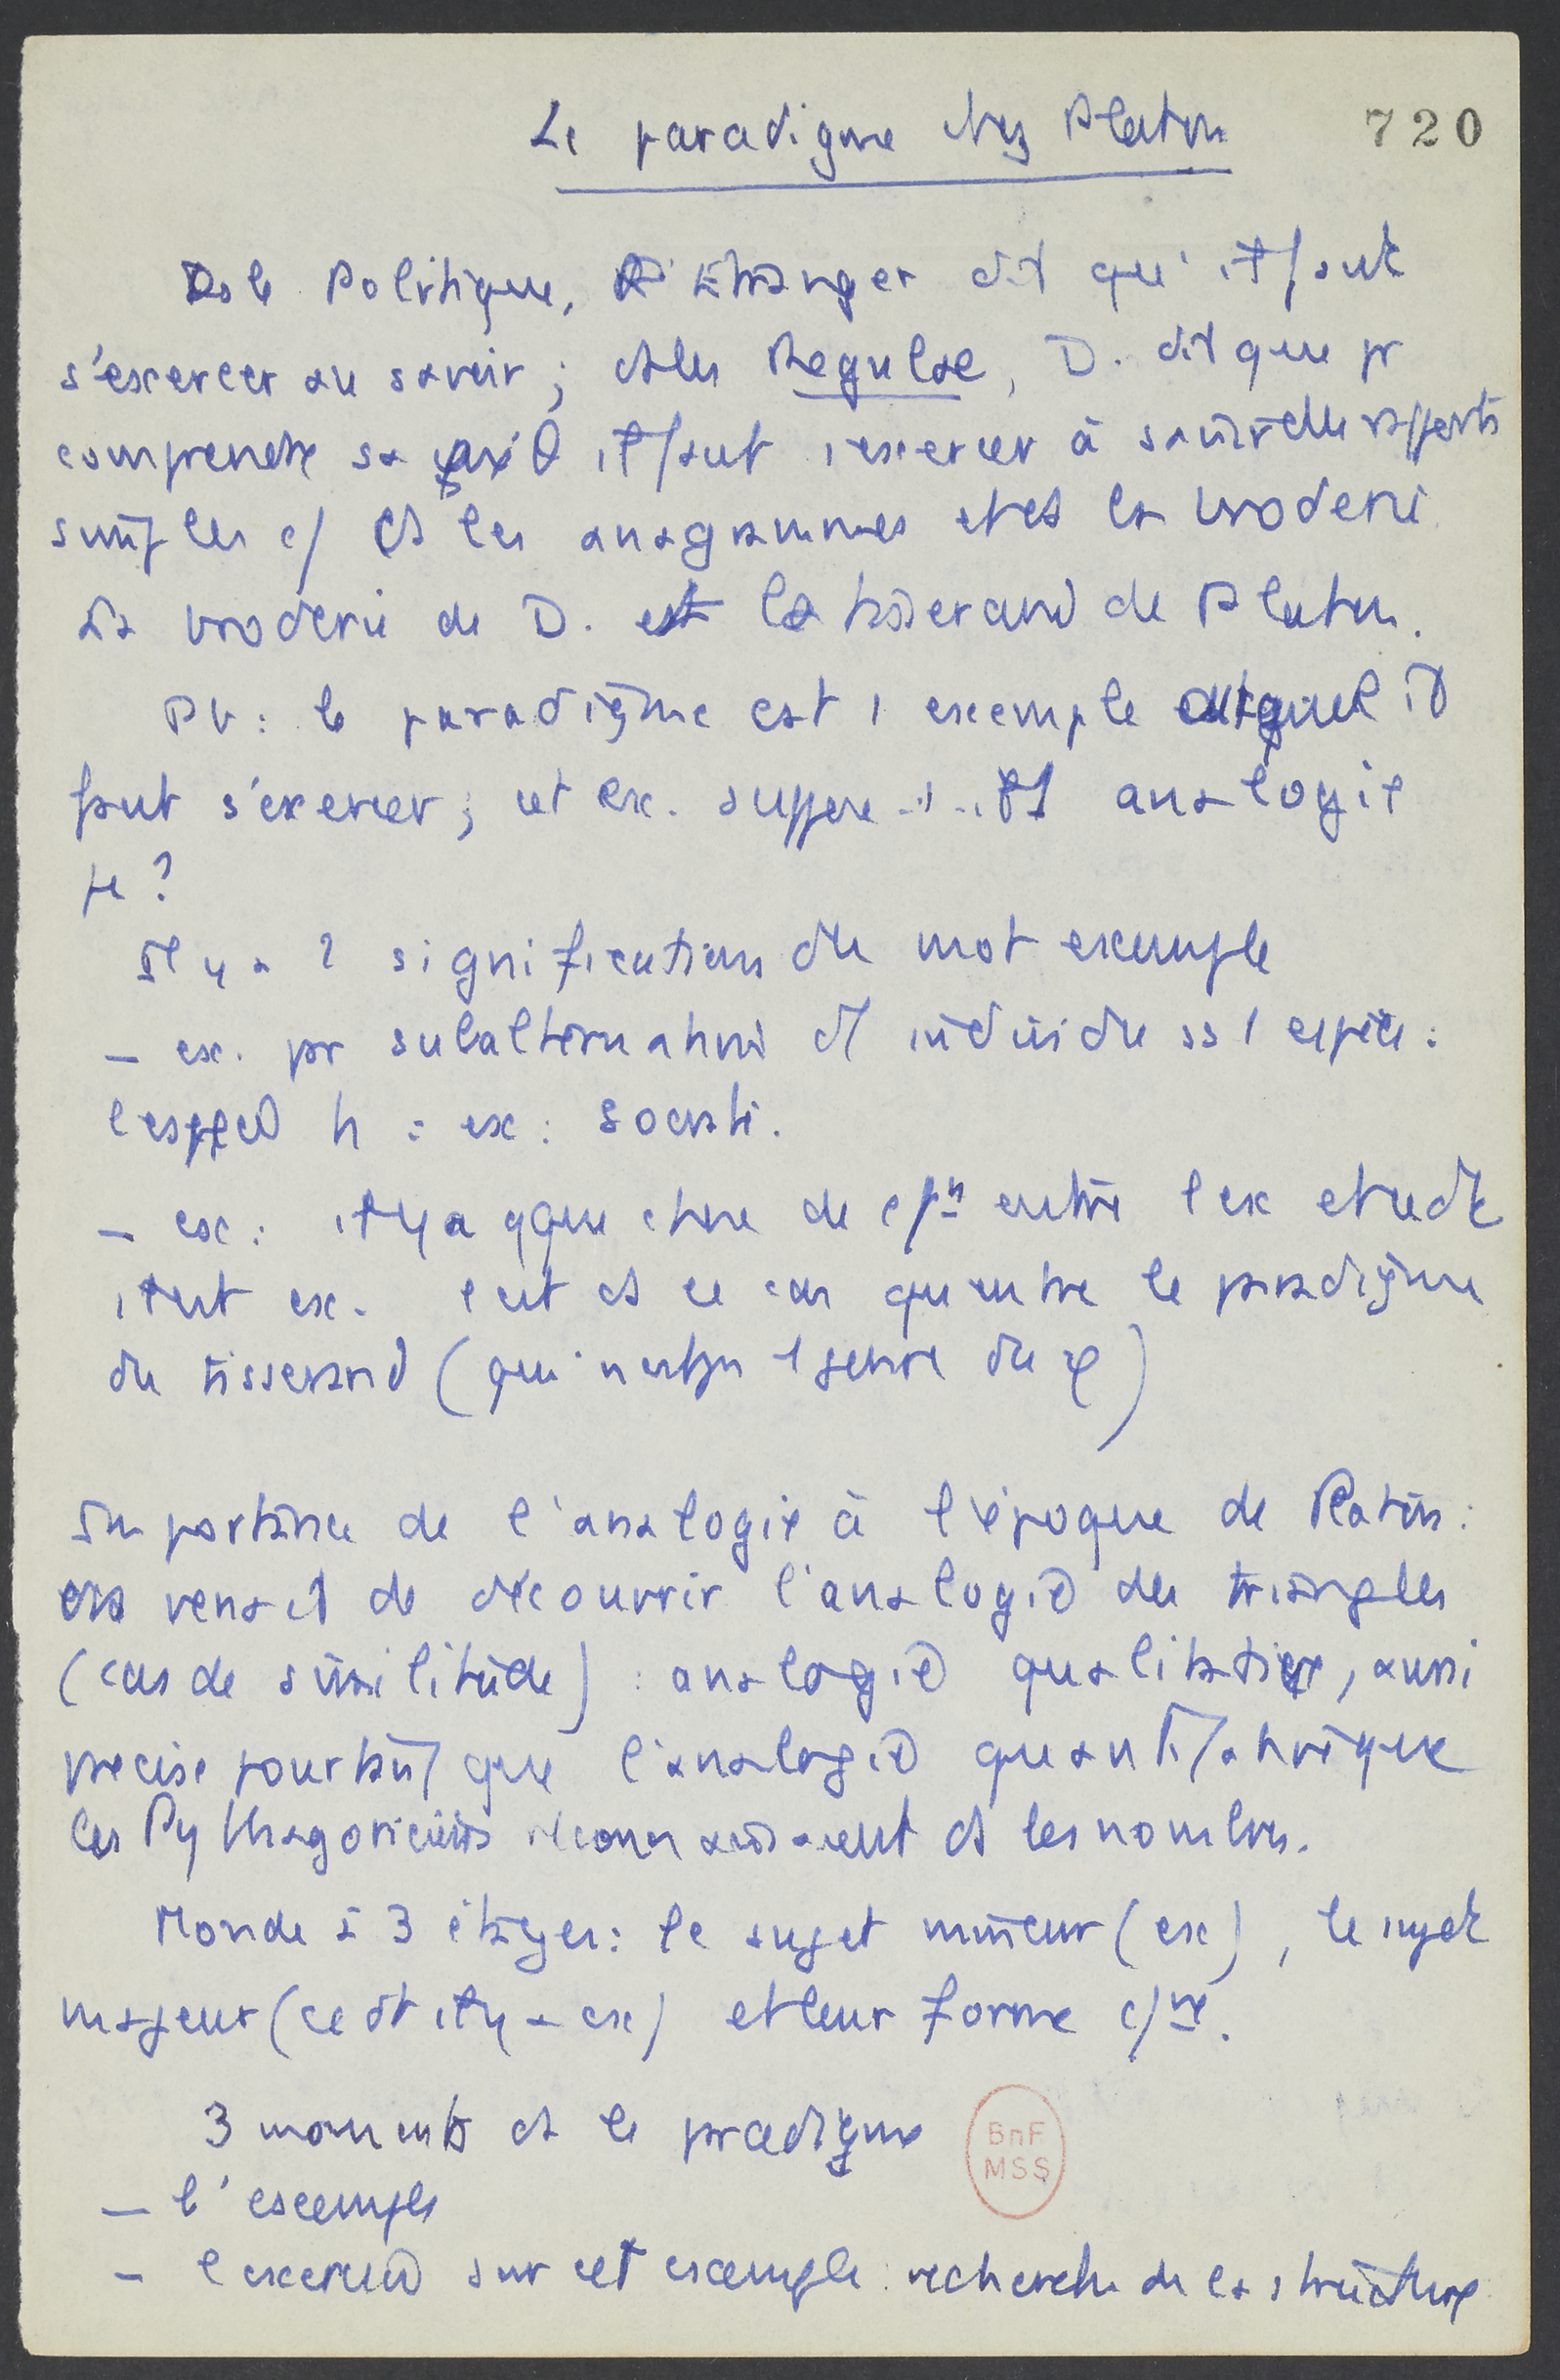 Le paradigme chez Platon
720
Ds le Politique, l'Etranger dit qu'il faut
s'exercer au savoir ; ds les Regulae, D. dit que pr
comprendre sa il faut s'exercer à saisir des rapports
simples c/ ds les anagrammes et ds la broderie
La broderie de D. est le tisserand de Platon.
Pb : le paradigme est 1 exemple auquel il
faut s'exercer ; cet ex. suppose analogie
pq ?
Il y a 2 significations du mot exemple
– ex. pr subalternation d'1 individu ss 1 espèce :
l'espèce h : ex : Socrate.
– ex : il y a qque chose de c/n entre l'ex et ce dt
il est ex. c'est ds ce cas qu'entre le paradigme
du tisserand (qui n'est pas 1 genre du φ)
Importance de l'analogie à l'époque de Platon :
on venait de découvrir l'analogie des triangles
(cas de similitude) : analogie qualitative, aussi
précise pourtant que l'analogie quantitative que
les Pythagoriciens reconnaissaient ds les nombres.
Monde à 3 étages : le sujet mineur (ex), le sujet
majeur (ce dt il y a ex) et leur forme c/ne.
3 moments ds le paradigme
BnF
MSS
– l'exemple
– l'exercice sur cet exemple : recherche de la structure